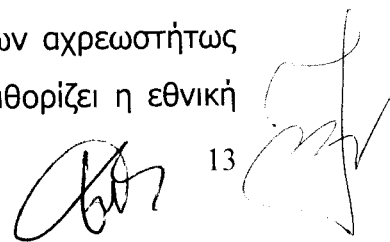 ων αχρεωστήτως
θορίζει η εθνική
13